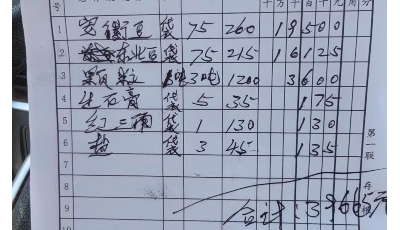 号 十万千百十元角分
1 安徽豆 袋 75 260 19500
2 东北豆 袋 75 215 16125
3 颗粒 3吨 1200 3600
4 生石膏 袋 5 35 175
5 袋 1 130 130
6 盐 袋 3 45 135
7
8
9
10
合计: 39665元
第一联
存